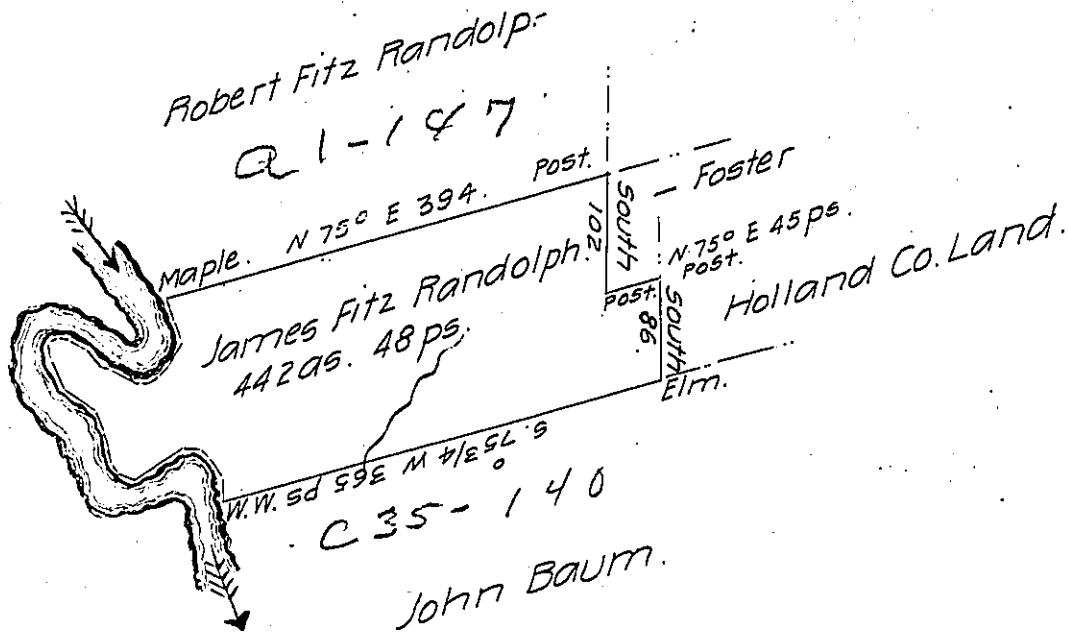 Robert Fitz Randolp:
Q1-147
Post.
Foster
N 75° E 394.
SOUTH
102
N. 75° E 45 ps.
Post.
Maple.
James Fitz Randolph.
442 as. 48 ps.
Post.
SOUTH
86.
Holland Co. Land.
Elm.
S. 75 3/4° W 365 ps
W.W.
C35-140
John Baum.